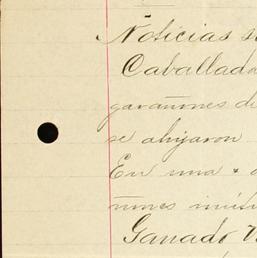 Noticias s
Caballada
garañones de
se ahijaron
En una
Ganado